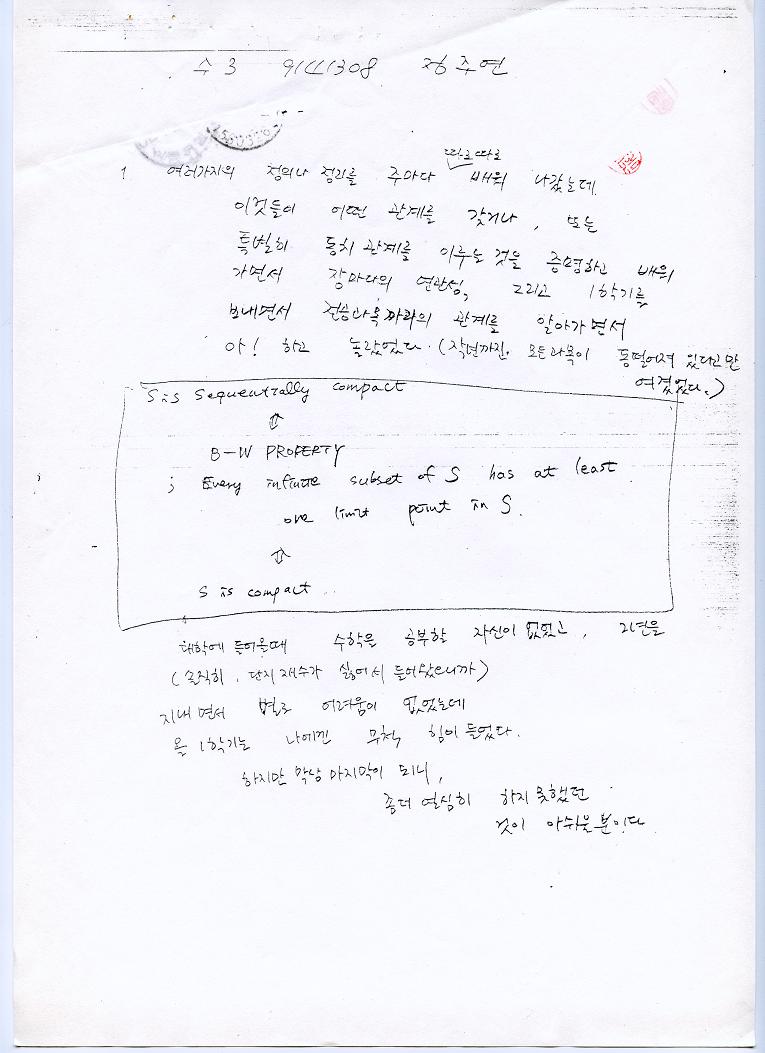 수3 정주연
따로따로
1 여러가지의 정의나 정리를 주마다 배워 나갔는데
이것들이 어떤 관계를 갖거나, 또는
특별히 동치 관계를 이루는 것을 증명하고 배워
가면서 장마다의 연관성, 그리고 1학기를
보내면서 전공과목까리의 관계를 알아가면서
아! 하고 놀랐었다. (작년까진 모든과목이 동떨어져 있다고만
여겼었다.)
S is sequentially compact
⇕
B-W PROPERTY
; Every infinite subset of S has at least
one limit point in S.
⇕
S is compact.
대학에 들어올때 수학을 공부할 자신이 없었고, 2년을
(솔직히, 단지 재수가 싫어서 들어왔으니까)
지내면서 별로 어려움이 없었는데
올 1학기는 나에겐 무척 힘이 들었다.
하지만 막상 마지막이 되니,
좀더 열심히 하지 못했던
것이 아쉬울 뿐이다